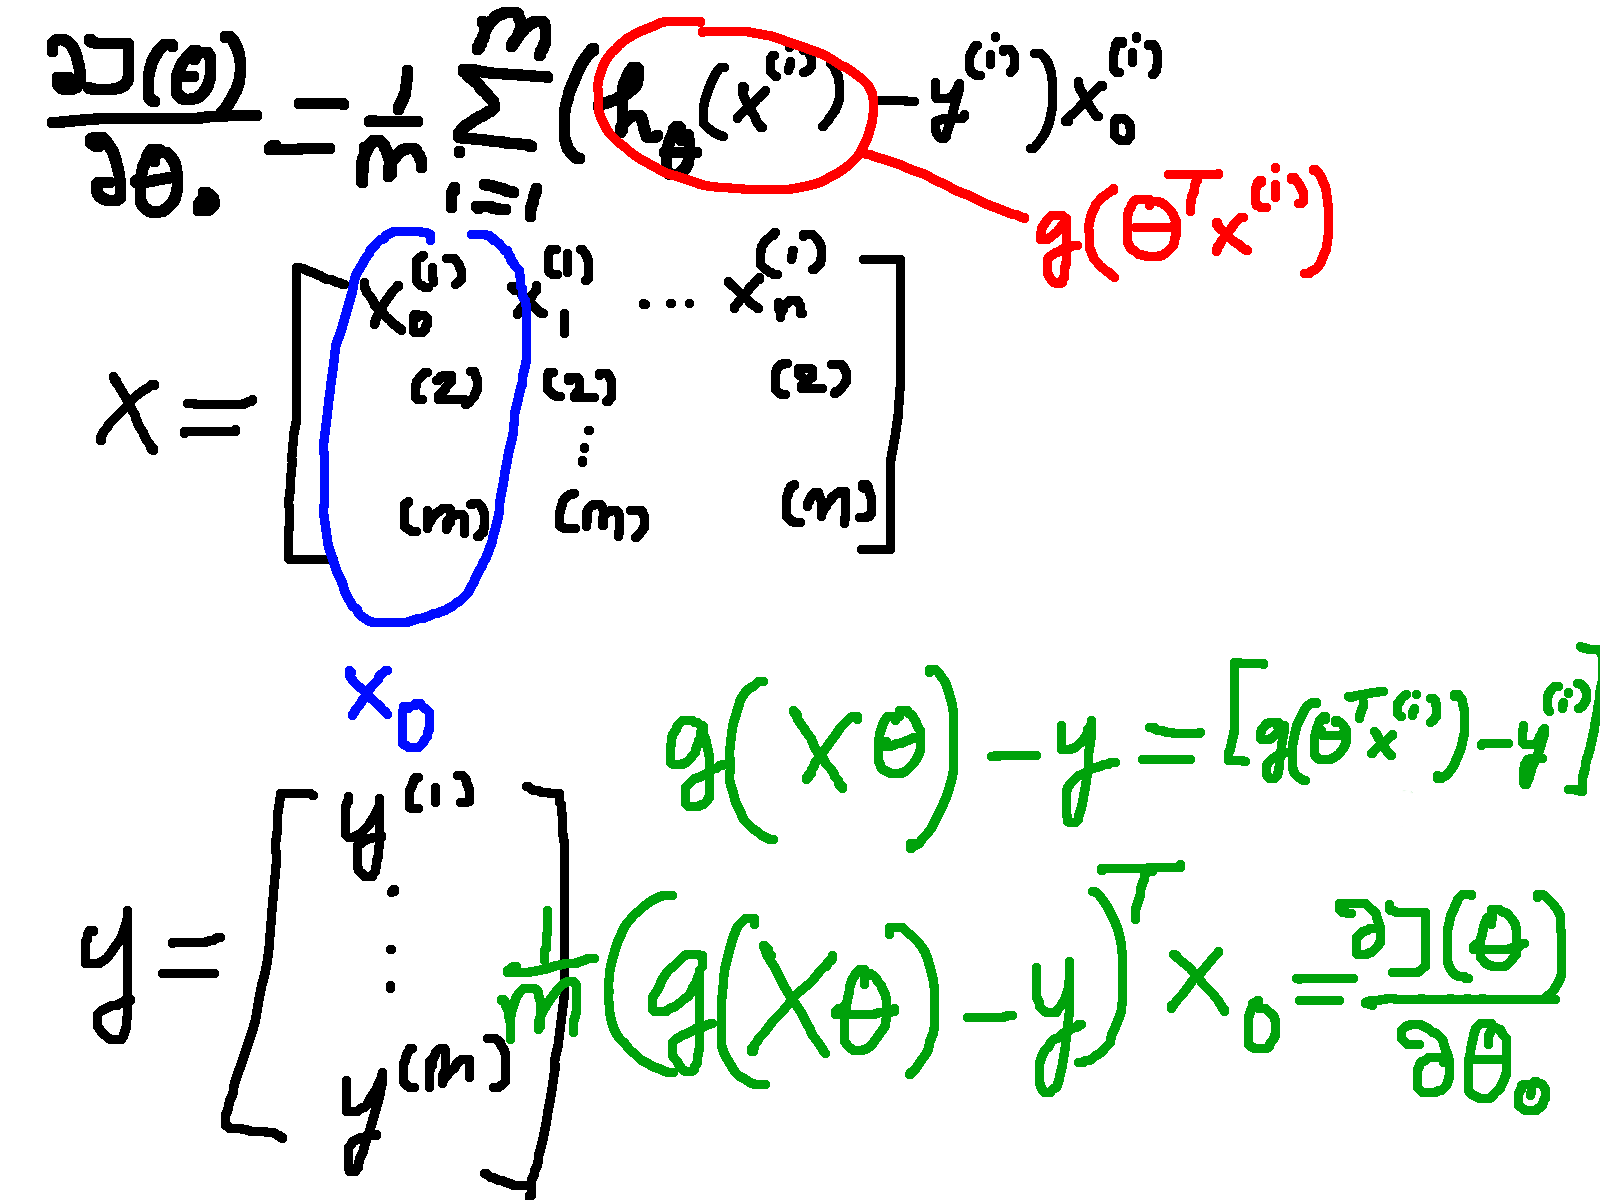 ∂J(θ)/∂θ₀ = 1/m ∑_{i=1}^{m} (h_θ(x^(i)) − y^(i)) x₀^(i)
g(θᵀx^(i))
X = [ x₀^(1) x₁^(1) ... x_n^(1)
(2) (2) (2)
⋮
(m) (m) (m) ]
x₀
g(Xθ) − y = [g(θᵀx^(i)) − y^(i)]
y = [ y^(1)
⋮
y^(m) ]
1/m (g(Xθ) − y)ᵀ x₀ = ∂J(θ)/∂θ₀